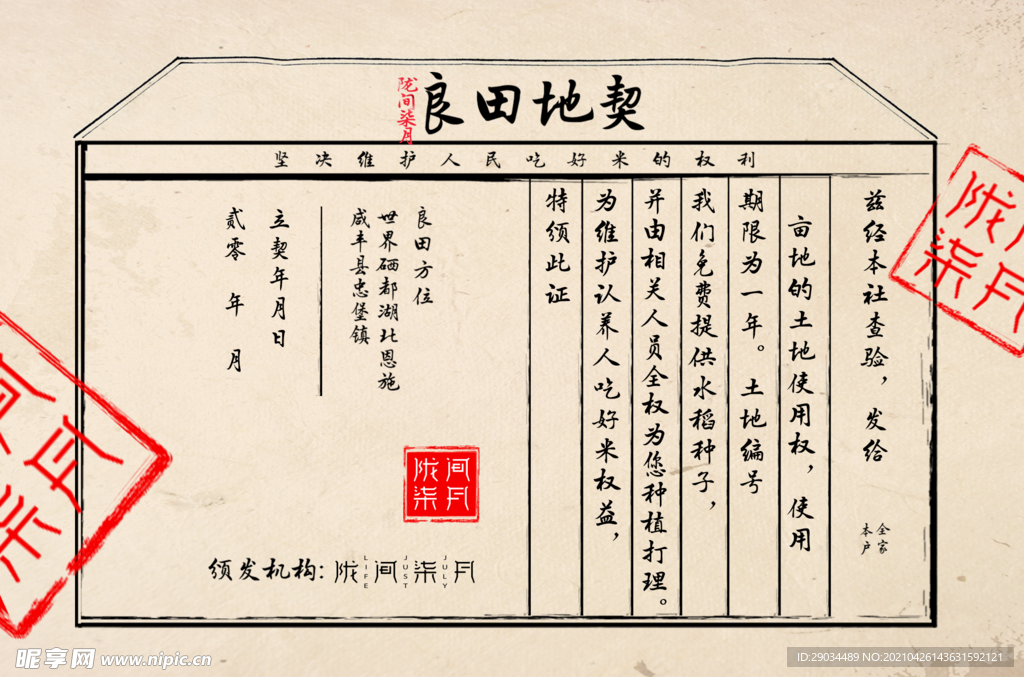 陇间柒月
良田地契
坚决维护人民吃好米的权利
兹经本社查验，发给
全家
本户
亩地的土地使用权，使用
期限为一年。土地编号
我们免费提供水稻种子，
并由相关人员全权为您种植打理。
为维护认养人吃好米权益，
特颁此证
良田方位
世界硒都湖北恩施
咸丰县忠堡镇
立契年月日
贰零 年 月
陇间柒月
颁发机构：陇间柒月
LIFE JUST JULY
陇 月
柒
间月
柒
昵享网 www.nipic.cn
ID:29034489 NO:20210426143631592121